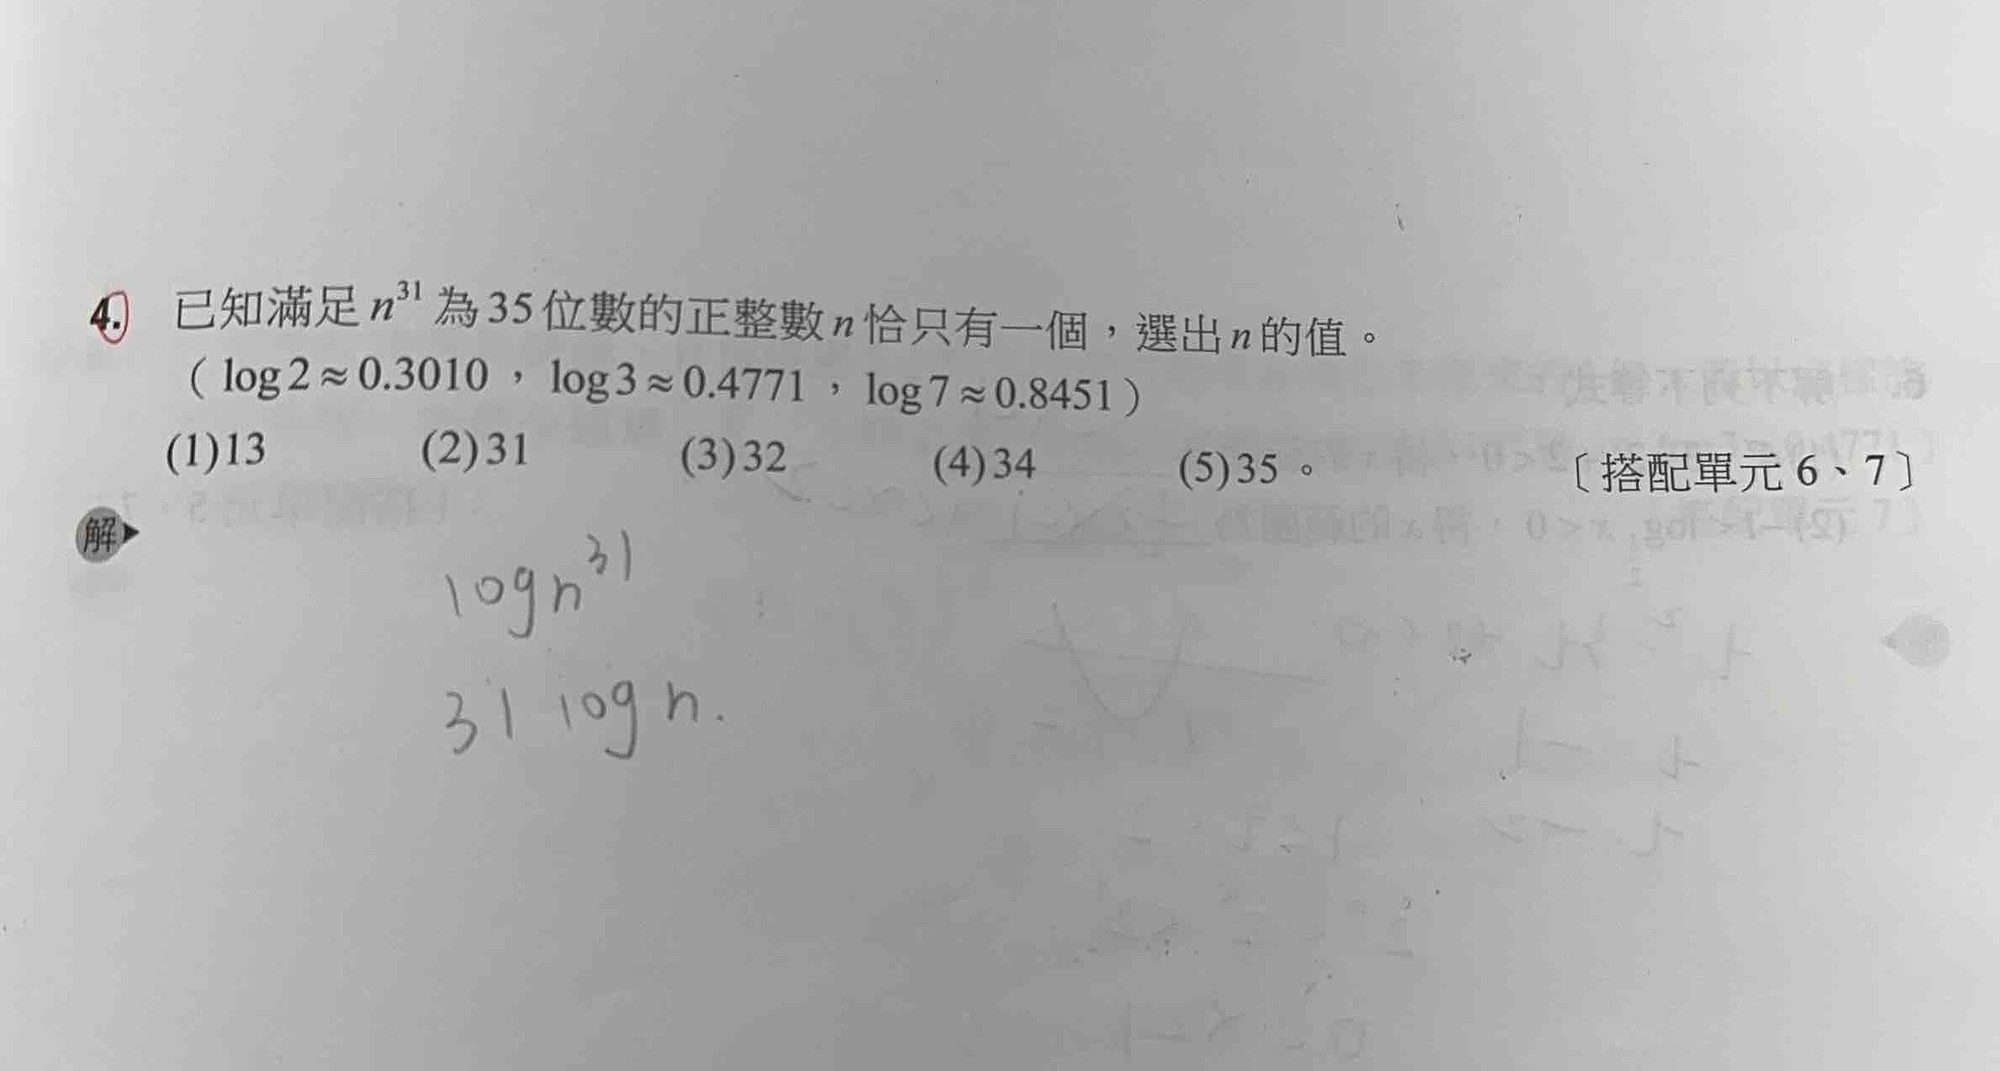 4. 已知滿足 n³¹ 為 35 位數的正整數 n 恰只有一個，選出 n 的值。
（log 2 ≈ 0.3010，log 3 ≈ 0.4771，log 7 ≈ 0.8451）
(1) 13 (2) 31 (3) 32 (4) 34 (5) 35。 〔搭配單元 6、7〕
解
log n³¹
31 log n.